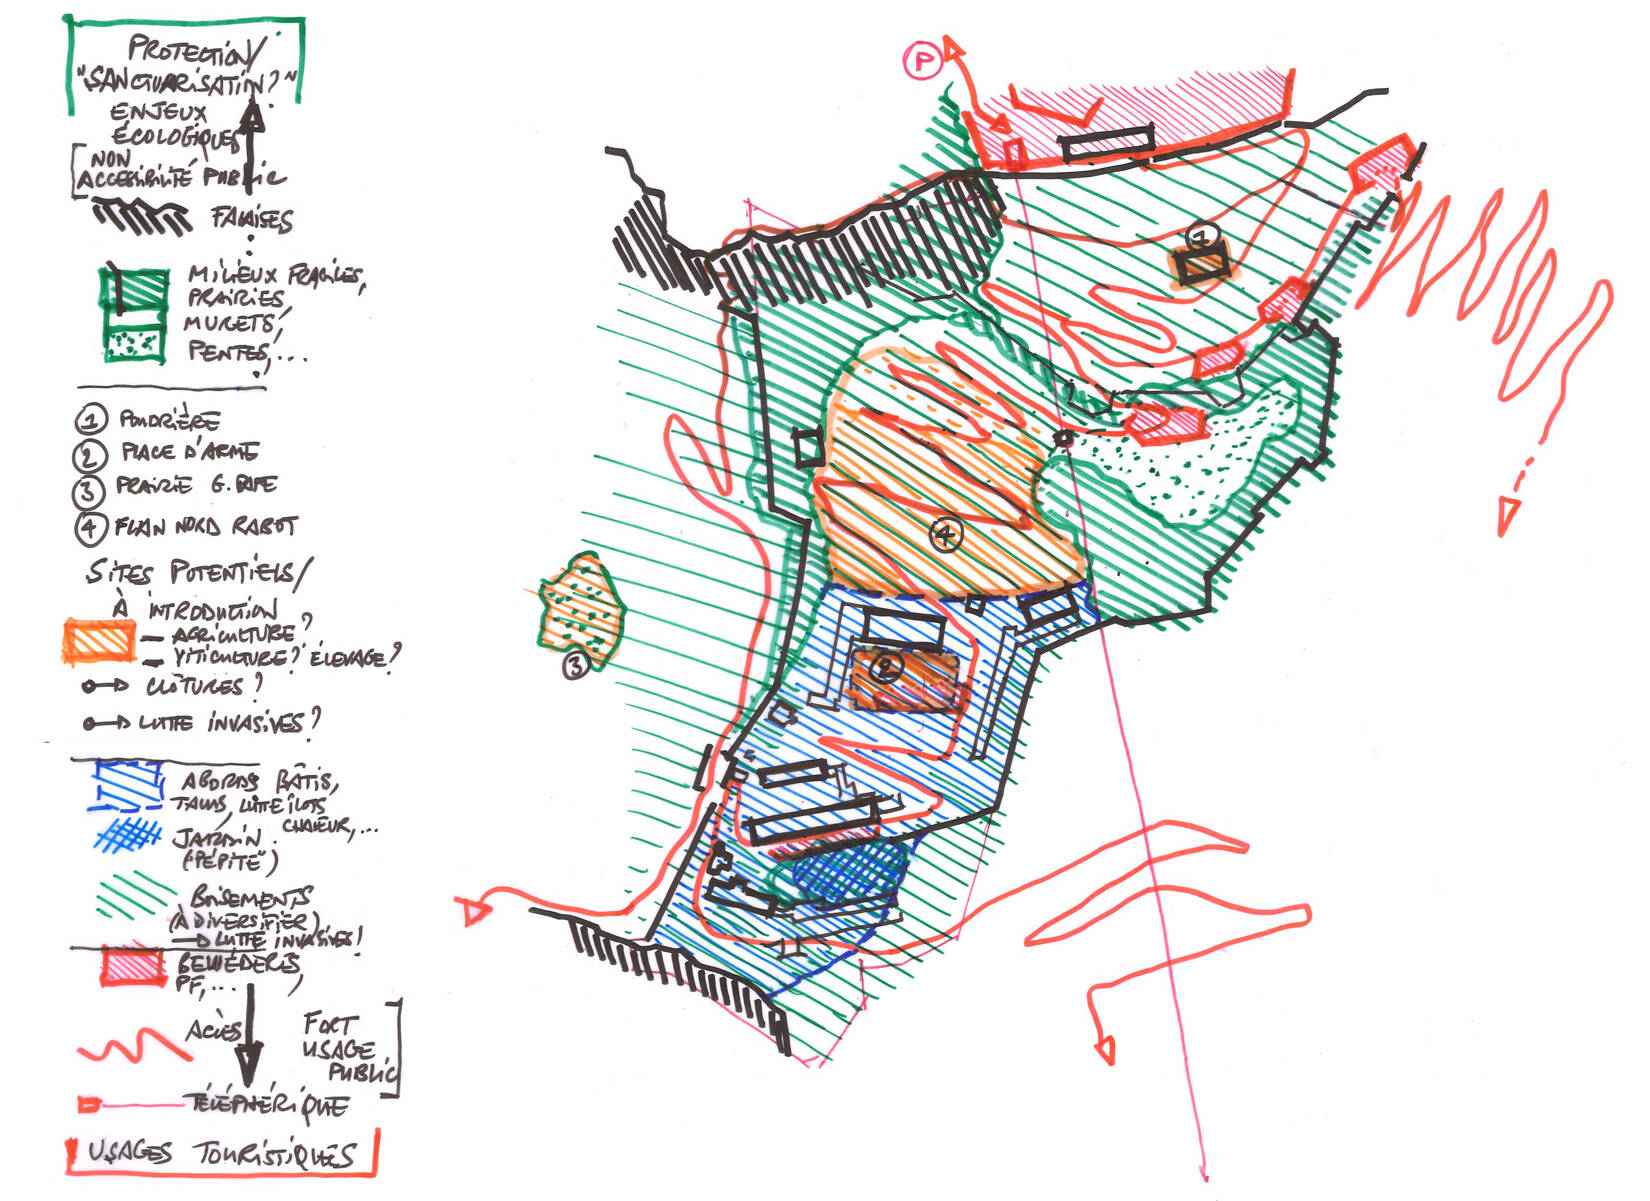 PROTECTION/
"SANCTUARISATION?"
ENJEUX
ÉCOLOGIQUES
[NON
ACCESSIBILITÉ PUBLIC
FALAISES
MILIEUX FRAGILES,
PRAIRIES,
MURETS,
PENTES,...
1 FONDRIÈRE
2 PLACE D'ARME
3 PRAIRIE G.
4 FLAN NORD RABOT
SITES POTENTIELS/
À INTRODUCTION
- AGRICULTURE?
- VITICULTURE? ÉLEVAGE?
CLÔTURES?
LUTTE INVASIVES?
ABORDS BÂTIS,
TALUS, LUTTE ÎLOTS
CHALEUR,...
JARDIN
("PÉPITE")
BOISEMENTS
(À DIVERSIFIER)
LUTTE INVASIVES!
BELVÉDÈRES,
PF,...
ACCÈS
FORT
USAGE
PUBLIC
TÉLÉPHÉRIQUE
USAGES TOURISTIQUES
P
1
4
3
2